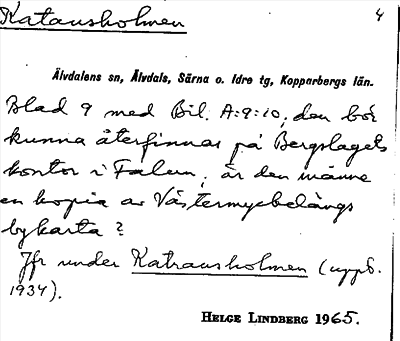 Katausholmen 4
Älvdalens sn, Älvdals, Särna o. Idre tg, Kopparbergs län.
Blad 9 med Bil. A:9:10, den bör
kunna återfinnas på Bergslagets
kontor i Falun, är den månne
en kopia av Västermyckelängs
bykarta?
Jfr under Katrausholmen (uppb.
1934).
HELGE LINDBERG 1965.